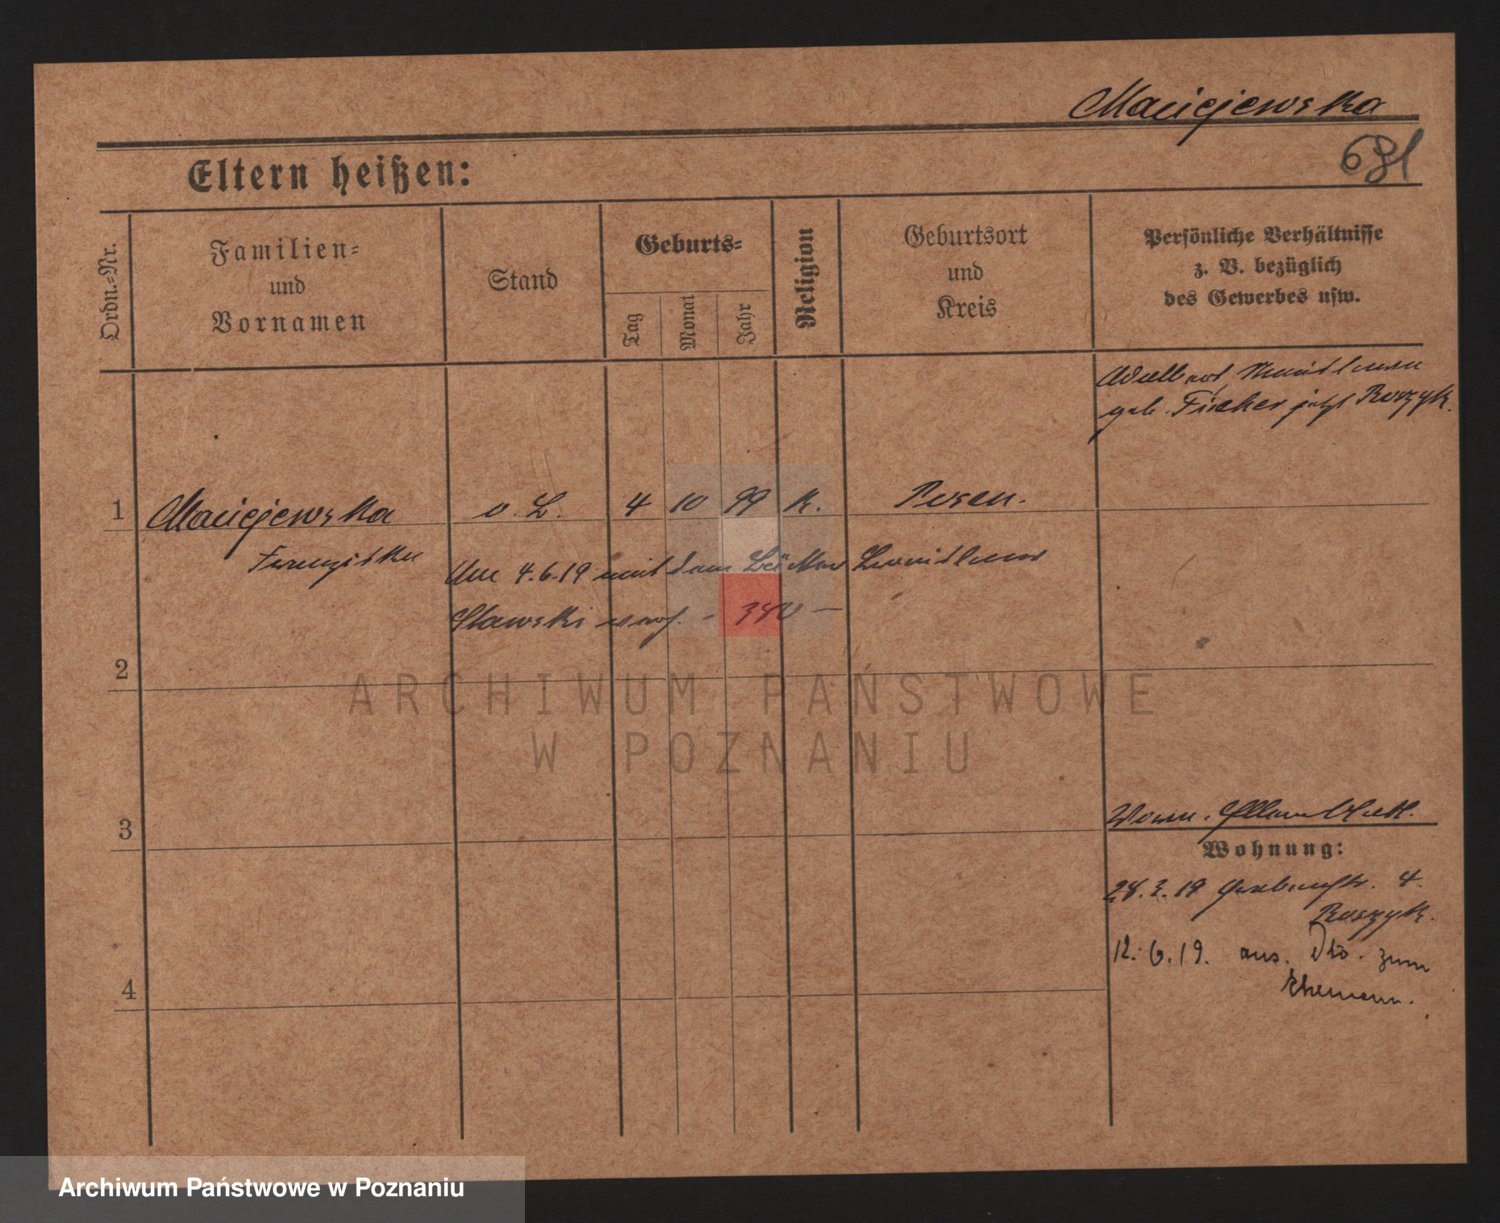 Maciejewska
631
Eltern heißen:
Ordn.-Nr.
Familien-
und
Vornamen
Stand
Geburts-
Tag
Monat
Jahr
Religion
Geburtsort
und
Kreis
Persönliche Verhältnisse
z. B. bezüglich
des Gewerbes usw.
Adalbert,
geb. Fischer jetzt Roszyk.
1 Maciejewska o. B. 4 10 99 K. Posen.
Franziska
Am 4.6.19 mit dem Bäcker
Slawski verh. -
2
ARCHIWUM PAŃSTWOWE
W POZNANIU
3
Wohnung:
28.3.19 Grabenstr. 4.
Roszyk.
12.6.19. aus. Dto. zum
Ehemann.
4
Archiwum Państwowe w Poznaniu